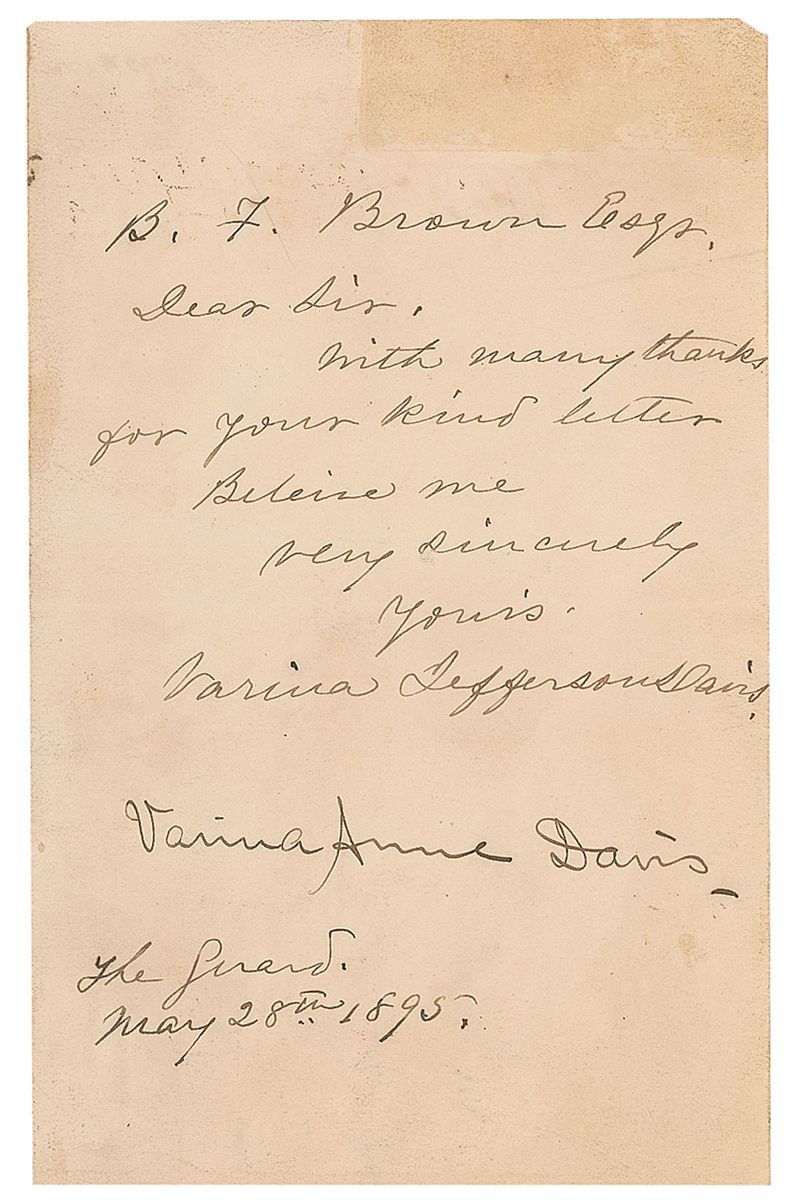 B. F. Brown Esqr.
Dear Sir.
With many thanks
for your kind letter
Beleive me
very sincerely
yours.
Varina Jefferson Davis.
Varina Anne Davis
The Gerard.
May 28th 1895.